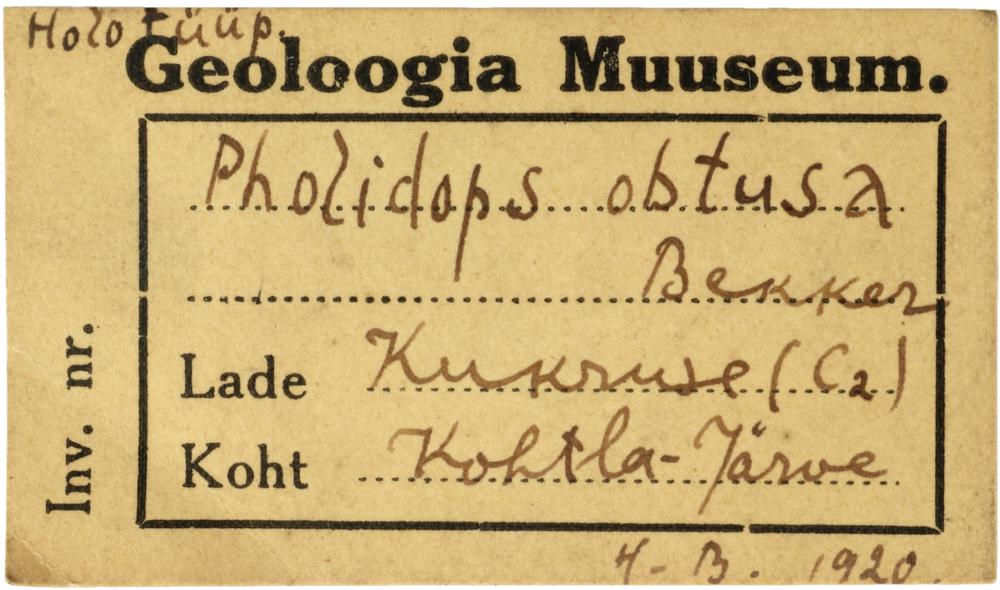 Holotüüp.
Geoloogia Muuseum.
Pholidops obtusa
Bekker
Lade Kukruse (C2)
Koht Kohtla-Järve
Inv. nr.
H-B. 1920.